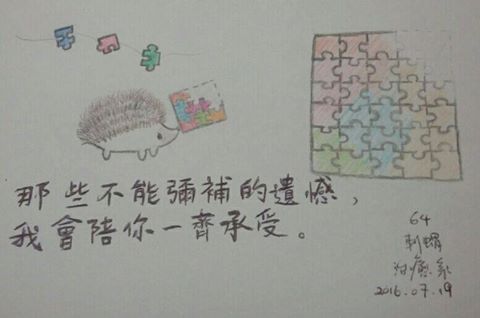 那些不能彌補的遺憾，
我會陪你一齊承受。
64
刺蝟
治癒系
2016.07.19